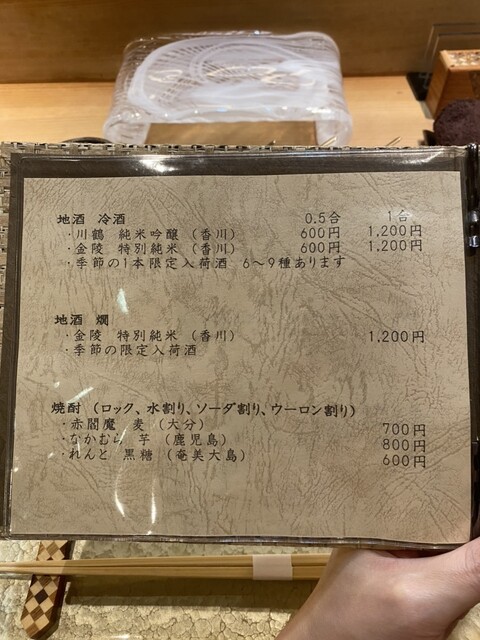 地酒 冷酒 0.5合 1合
・川鶴 純米吟醸 (香川) 600円 1,200円
・金陵 特別純米 (香川) 600円 1,200円
・季節の1本限定入荷酒 6〜9種あります
地酒 燗
・金陵 特別純米 (香川) 1,200円
・季節の限定入荷酒
焼酎 (ロック、水割り、ソーダ割り、ウーロン割り)
・赤閻魔 麦 (大分) 700円
・なかむら 芋 (鹿児島) 800円
・れんと 黒糖 (奄美大島) 600円